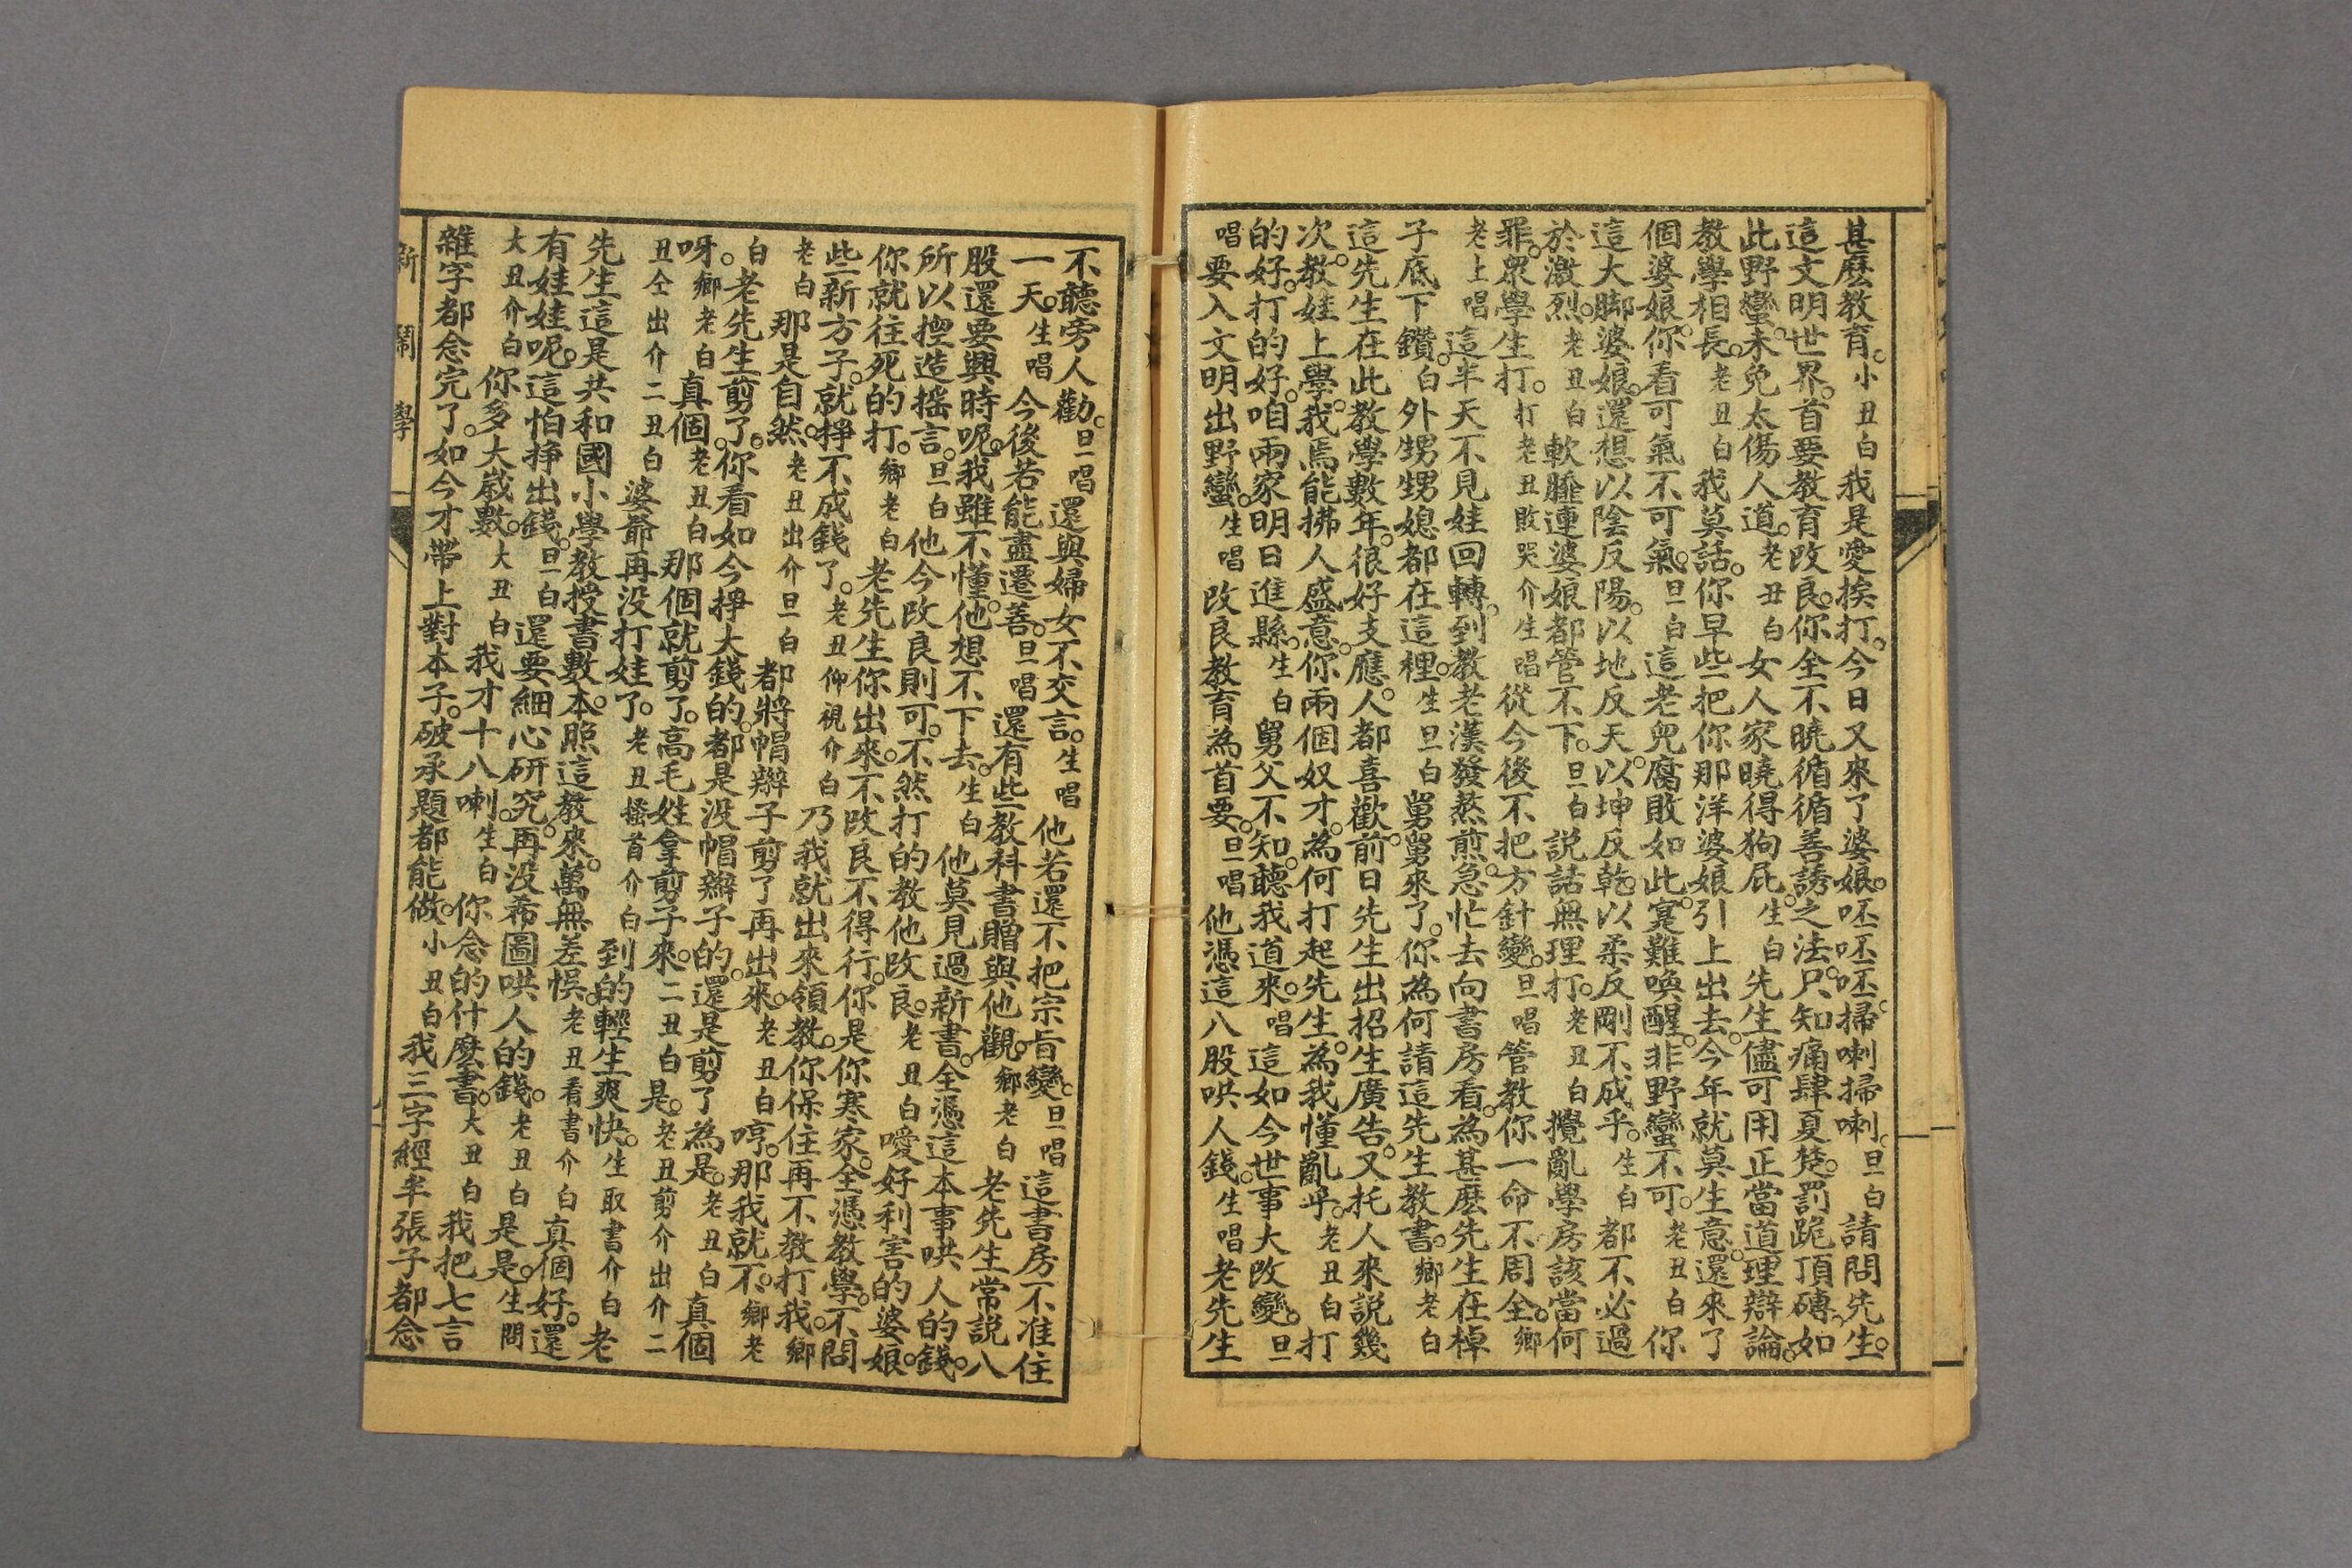 甚麽教育。小丑白我是愛挨打。今日又來了婆娘。呸呸呸。掃喇掃喇。旦白請問先生。
這文明世界。首要教育改良。你全不曉循循善誘之法。只知痛肆夏楚。罰跪頂磚。如
此野蠻。未免太傷人道。老丑白女人家曉得狗屁。生白先生。儘可用正當道理辯論。
教學相長。老丑白我莫話。你早些把你那洋婆娘引上出去。今年就莫生意。還來了
個婆娘。你看可氣不可氣。旦白這老兜腐敗如此。寔難喚醒。非野蠻不可。老丑白你
這大脚婆娘。還想以陰反陽。以地反天。以坤反乾。以柔反剛不成乎。生白都不必過
於激烈。老丑白軟腫連婆娘都管不下。旦白説話無理打。老丑白攪亂學房該當何
罪。眾學生打。打老丑敗哭介生唱從今後不把方針變。旦唱管教你一命不周全。鄉
老上唱這半天不見娃回轉。到教老漢發熬煎。急忙去向書房看。為甚麽先生在棹
子底下鑽。白外甥甥媳都在這裡。生旦白舅舅來了。你為何請這先生教書。鄉老白
這先生在此教學數年。很好支應。人都喜歡。前日先生出招生廣告。又托人來説幾
次。教娃上學。我焉能拂人盛意。你兩個奴才。為何打起先生。為我懂亂乎。老丑白打
的好。打的好。咱兩家明日進縣。生白舅父不知。聽我道來。唱這如今世事大改變。旦
唱要入文明出野蠻。生唱改良教育為首要。旦唱他憑這八股哄人錢。生唱老先生
不聽旁人勸。旦唱還與婦女不交言。生唱他若還不把宗旨變。旦唱這書房不准住
一天。生唱今後若能盡遷善。旦唱還有些教科書贈與他觀。鄉老白老先生常説八
股還要興時呢。我雖不懂。他想不下去。生白他莫見過新書。全憑這本事哄人的錢。
所以揑造摇言。旦白他今改良則可。不然打的教他改良。老丑白噯好利害的婆娘。
你就往死的打。鄉老白老先生你出來。不改良不得行。你是你寒家。全憑教學。不問
些新方子。就掙不成錢了。老丑仰視介白乃我就出來領教。你保住再不教打我。鄉
老白那是自然。老丑出介旦白都將帽辮子剪了再出來。老丑白哼。那我就不。鄉老
白。老先生剪了。你看如今掙大錢的。都是没帽辮子的。還是剪了為是。老丑白真個
呀。鄉老白真個。老丑白那個就剪了。高毛姓拿剪子來。二丑白是。老丑剪介出介二
丑仝出介二丑白婆爺再没打娃了。老丑搔首介白到的輕生爽快。生取書介白老
先生這是共和國小學教授書數本。照這教來。萬無差悞。老丑看書介白真個好。還
有娃娃呢。這怕掙出錢。旦白還要細心研究。再没希圖哄人的錢。老丑白是是。生問
大丑介白你多大歲數。大丑白我才十八喇。生白你念的什麽書。大丑白我把七言
雜字都念完了。如今才帶上對本子。破承題都能做。小丑白我三字經半張子都念
新鬧學